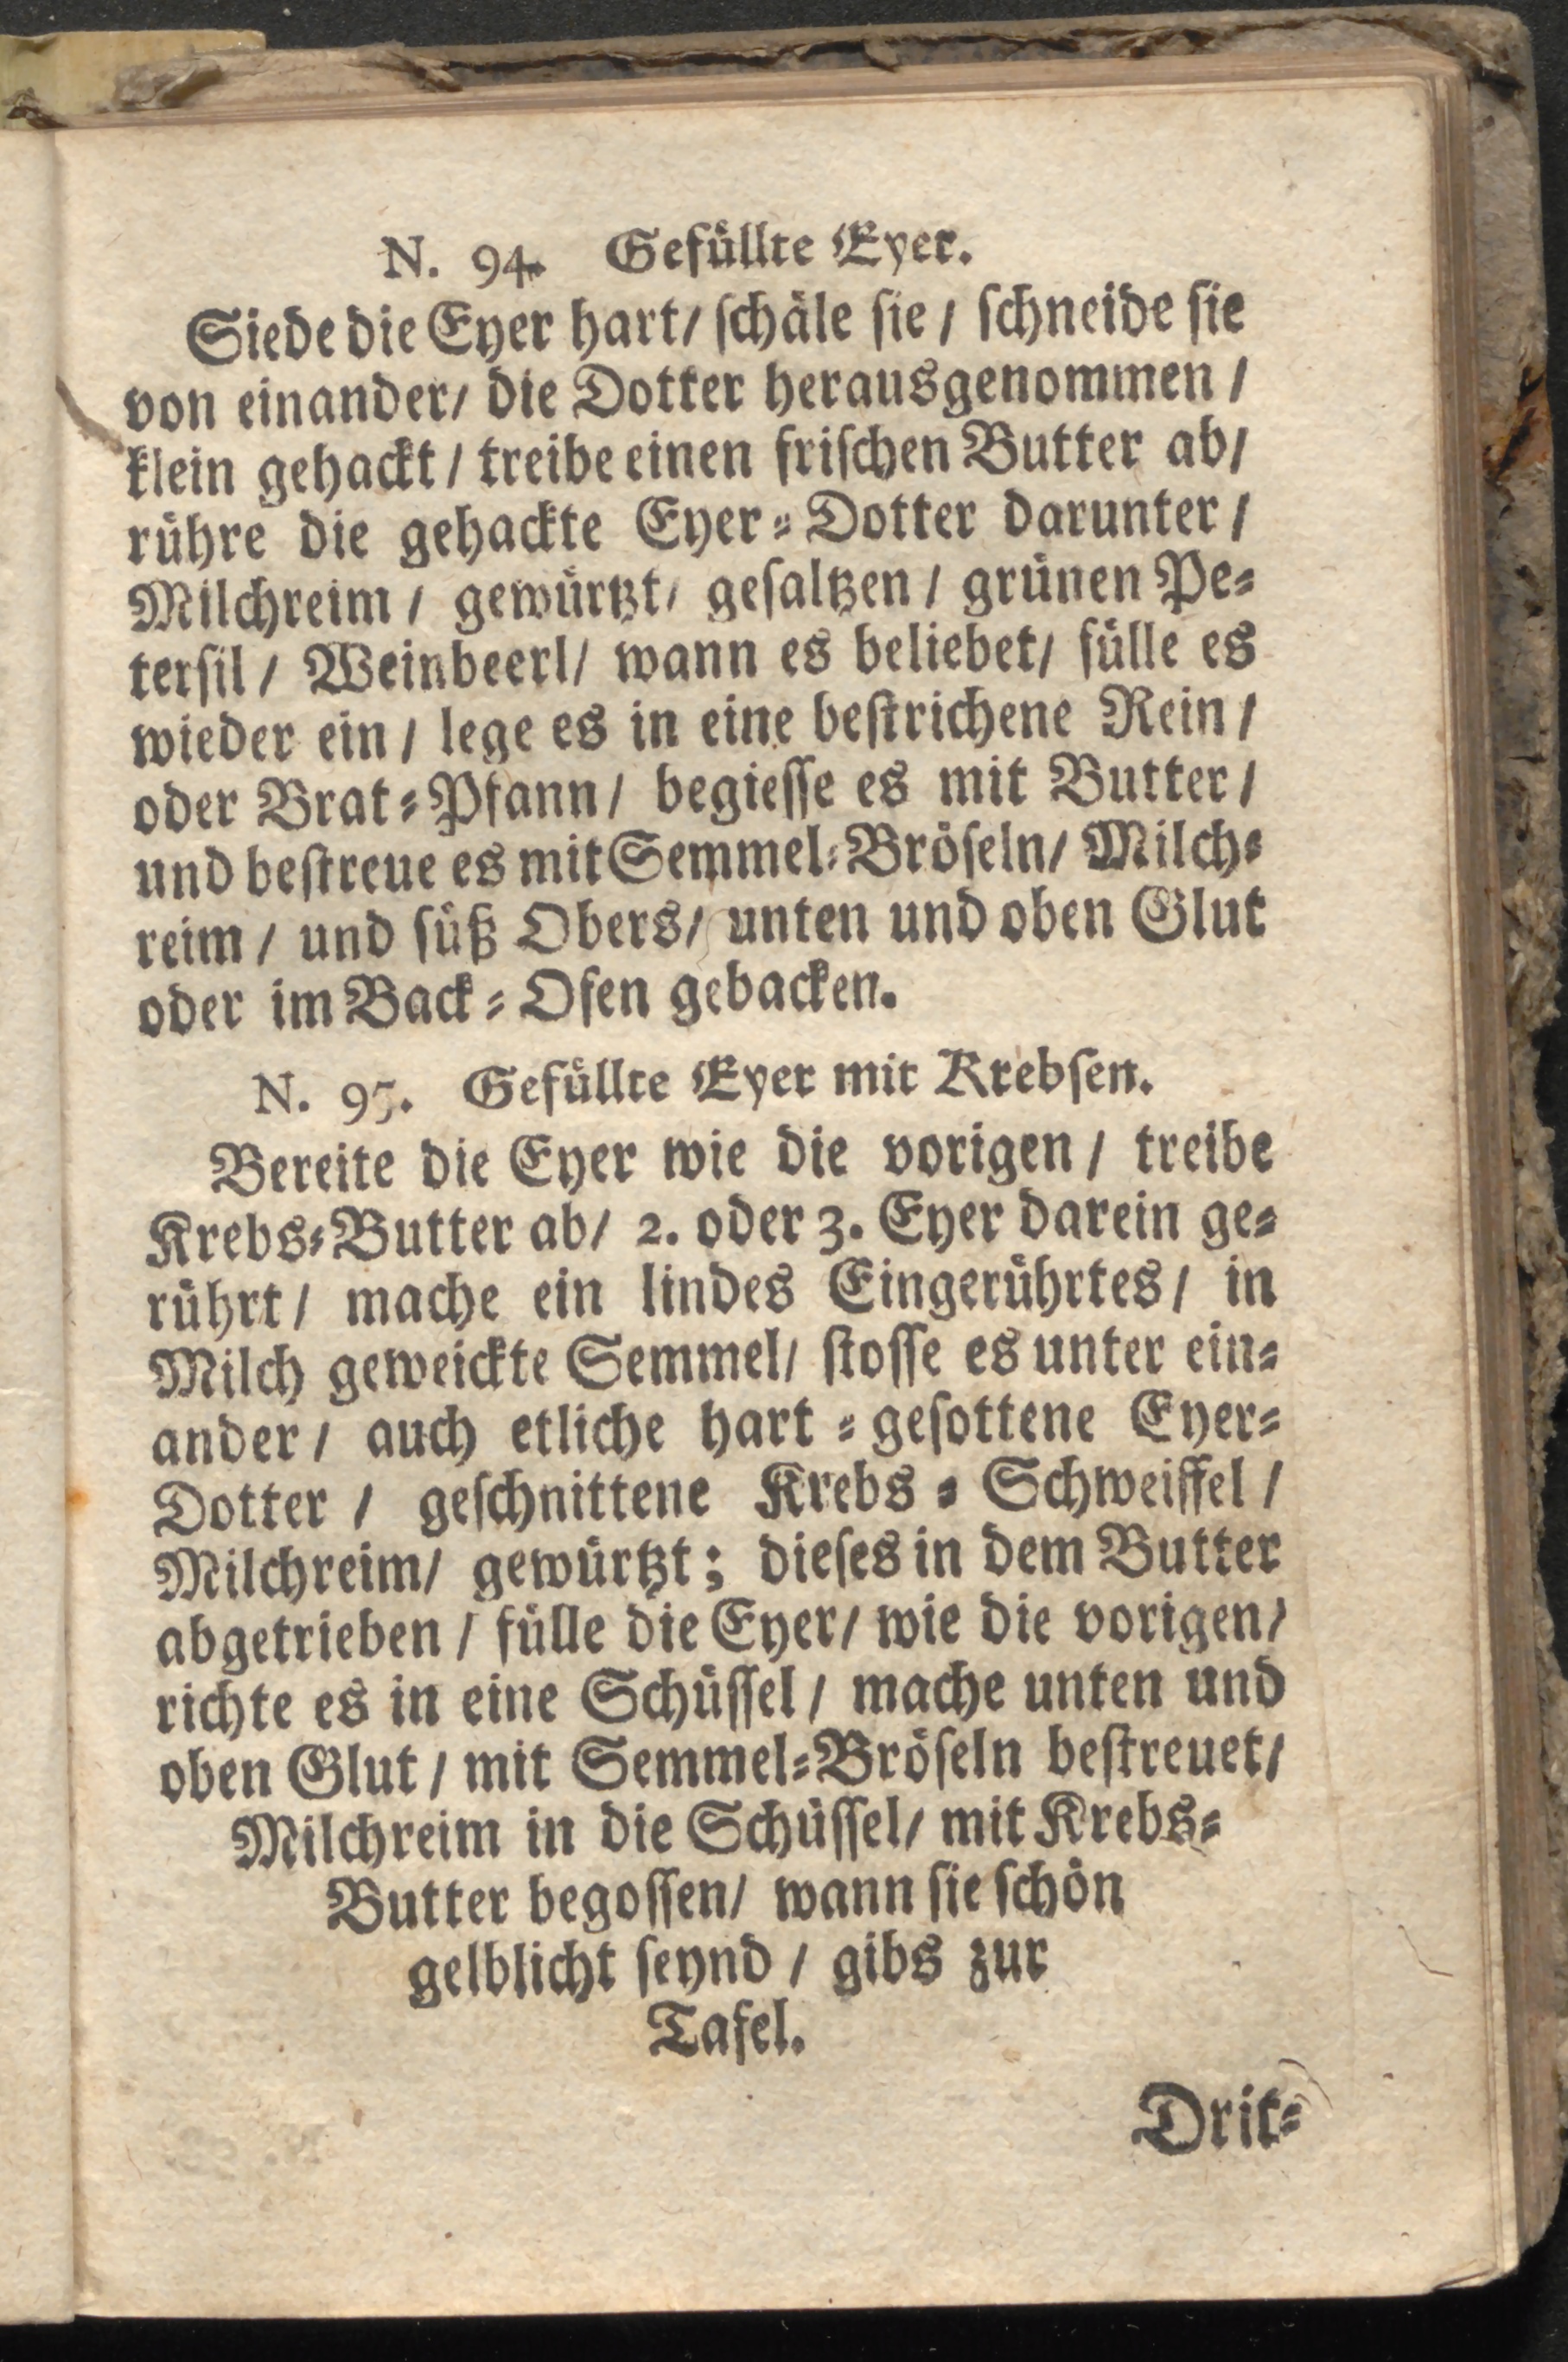 N. 94. Gefüllte Eyer.
Siede die Eyer hart/ ſchäle ſie / ſchneide ſie
von einander/ die Dotter herausgenommen /
klein gehackt / treibe einen friſchen Butter ab/
rühre die gehackte Eyer⸗Dotter darunter /
Milchreim / gewürtzt/ geſaltzen / grünen Pe⸗
terſil / Weinbeerl/ wann es beliebet/ fülle es
wieder ein / lege es in eine beſtrichene Rein /
oder Brat⸗Pfann / begieſſe es mit Butter /
und beſtreue es mit Semmel⸗Bröſeln/ Milch⸗
reim / und ſüß Obers/ unten und oben Glut
oder im Back⸗Ofen gebacken.
N. 95. Gefüllte Eyer mit Krebſen.
Bereite die Eyer wie die vorigen / treibe
Krebs⸗Butter ab/ 2. oder 3. Eyer darein ge⸗
rührt / mache ein lindes Eingerührtes / in
Milch geweickte Semmel/ ſtoſſe es unter ein⸗
ander / auch etliche hart⸗geſottene Eyer⸗
Dotter / geſchnittene Krebs⸗Schweiffel /
Milchreim/ gewürtzt; dieſes in dem Butter
abgetrieben / fülle die Eyer/ wie die vorigen/
richte es in eine Schüſſel / mache unten und
oben Glut / mit Semmel⸗Bröſeln beſtreuet/
Milchreim in die Schüſſel/ mit Krebs⸗
Butter begoſſen/ wann ſie ſchön
gelblicht ſeynd / gibs zur
Tafel.
Drit⸗